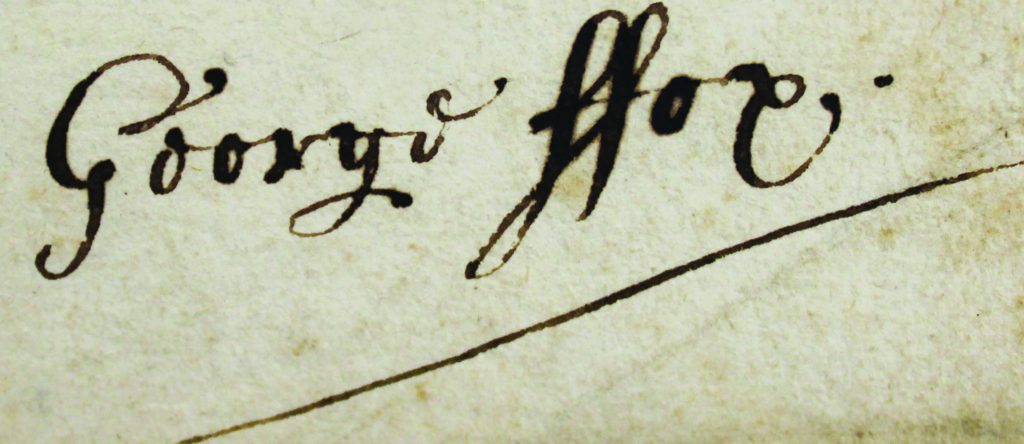 George ffox.